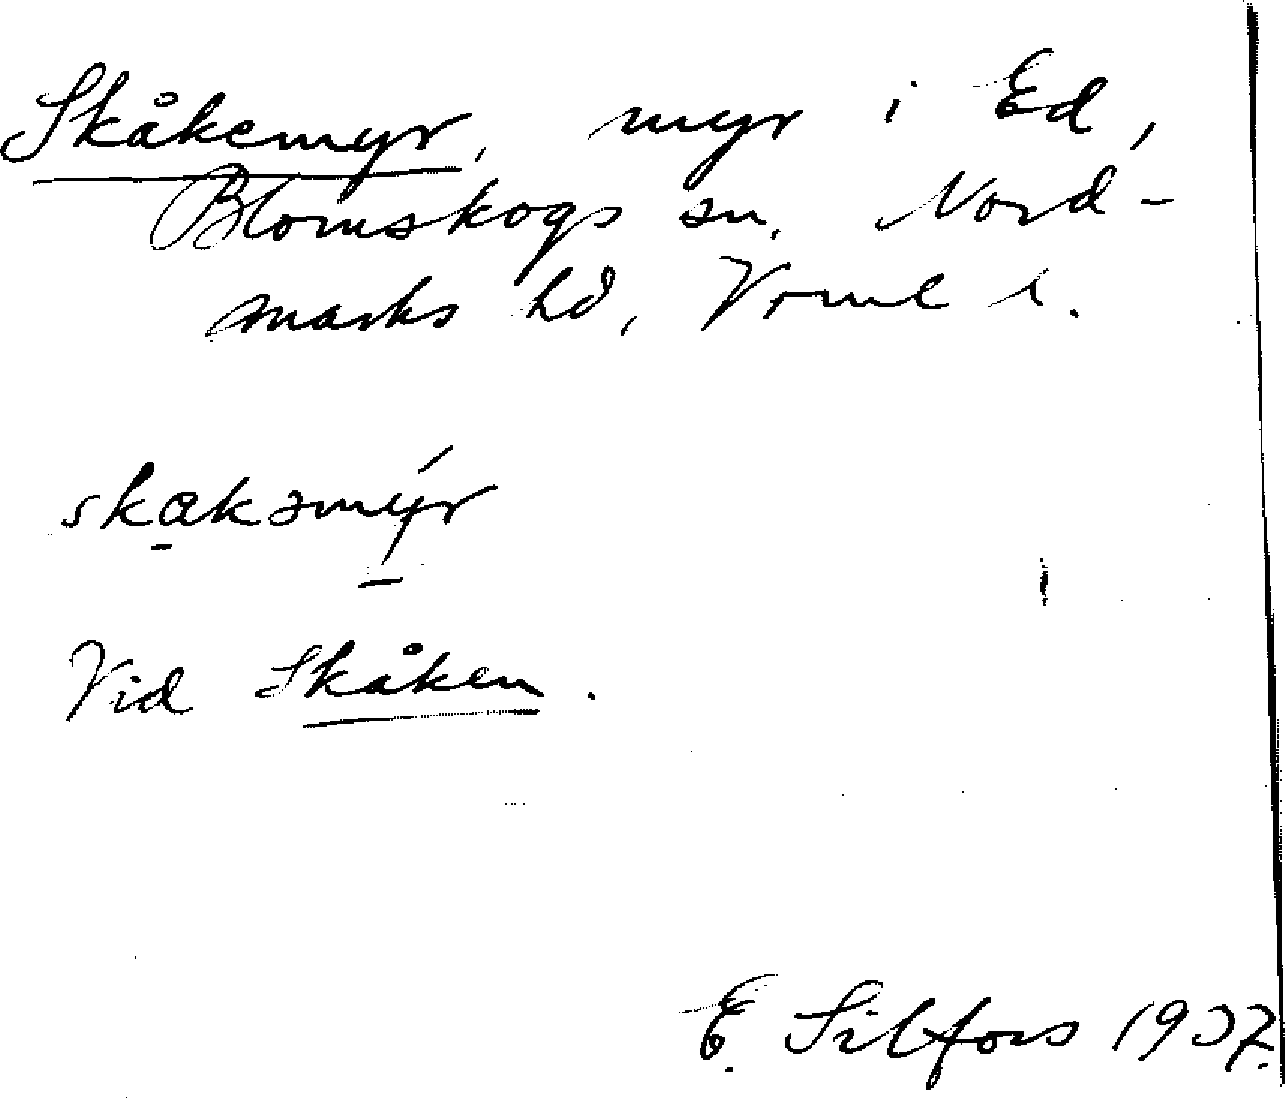 Skåkemyr, myr i Ed,
Blomskogs sn, Nord-
marks hd, Vrml l.
skakəmýr
Vid Skåken.
E. Silfors 1937.